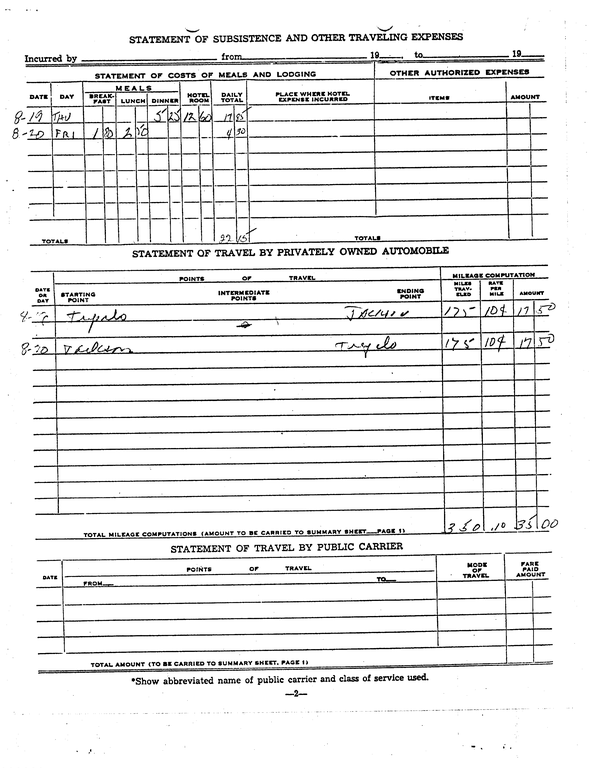 STATEMENT OF SUBSISTENCE AND OTHER TRAVELING EXPENSES
Incurred by from 19 to 19
STATEMENT OF COSTS OF MEALS AND LODGING OTHER AUTHORIZED EXPENSES
MEALS
DATE DAY BREAK-FAST LUNCH DINNER HOTEL ROOM DAILY TOTAL PLACE WHERE HOTEL EXPENSE INCURRED ITEMS AMOUNT
8-19 THU 5 25 12 60 17 85
8-20 FRI 1 80 2 50 4 30
TOTALS 22 15 TOTALS
STATEMENT OF TRAVEL BY PRIVATELY OWNED AUTOMOBILE
POINTS OF TRAVEL MILEAGE COMPUTATION
DATE OR DAY STARTING POINT INTERMEDIATE POINTS ENDING POINT MILES TRAV-ELED RATE PER MILE AMOUNT
Tupelo Jackson 175 10¢ 17 50
8-20 Jackson Tupelo 175 10¢ 17 50
TOTAL MILEAGE COMPUTATIONS (AMOUNT TO BE CARRIED TO SUMMARY SHEET PAGE 1) 350 .10 35 00
STATEMENT OF TRAVEL BY PUBLIC CARRIER
DATE POINTS OF TRAVEL MODE OF TRAVEL FARE PAID AMOUNT
FROM TO
TOTAL AMOUNT (TO BE CARRIED TO SUMMARY SHEET, PAGE 1)
*Show abbreviated name of public carrier and class of service used.
—2—